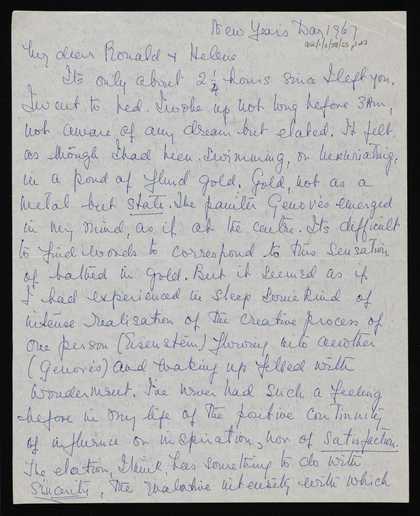 New Years Day 1967
My dear Ronald & Helene
Its only about 2 1/4 hours since I left you.
I went to bed. I woke up not long before 3AM,
not aware of any dream but elated. It felt
as though I had been swimming, or luxuriating,
in a pond of fluid gold. Gold, not as a
metal but state. The painter Genovés emerged
in my mind, as if at the centre. Its difficult
to find words to correspond to this sensation
of bathed in gold. But it seemed as if
I had experienced in sleep some kind of
intense realisation of the creative process of
one person (Eisenstein) flowing into another
(Genovés) and waking up filled with
wonderment. I've never had such a feeling
before in my life of the positive continuity
of influence or inspiration, nor of satisfaction.
The elation, I think, has something to do with
sincerity, the relative intensity with which